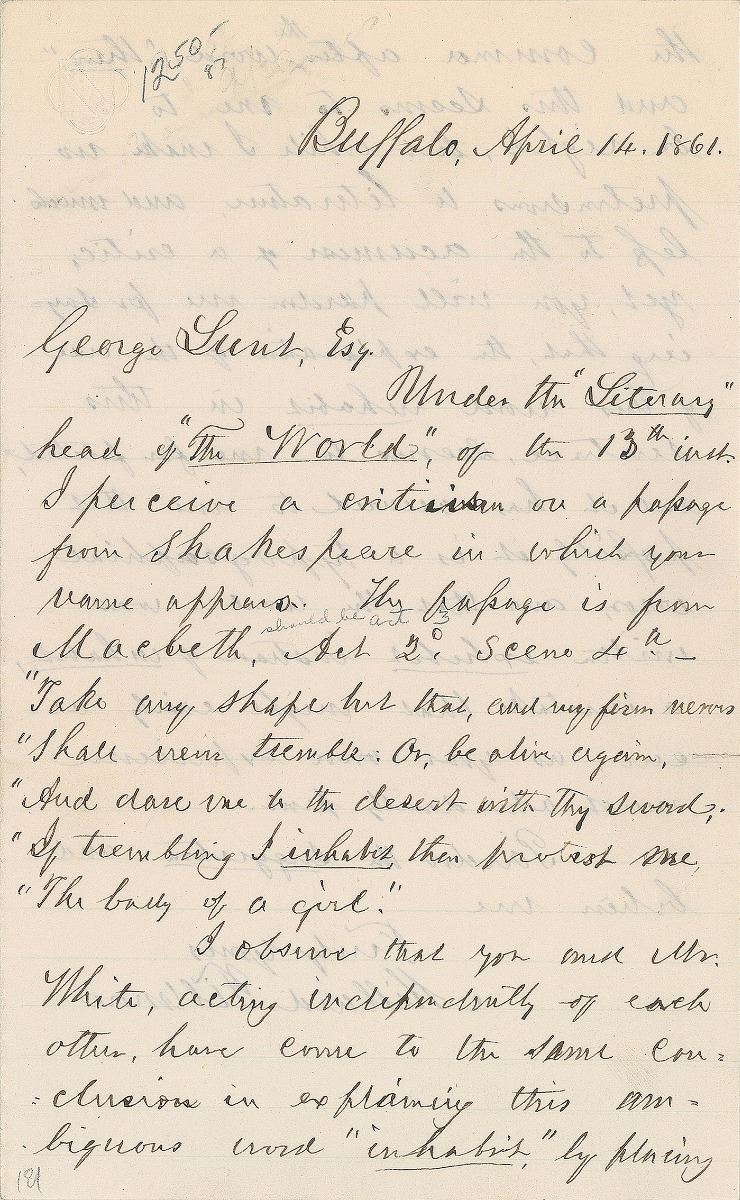 1250-
87
Buffalo, April 14. 1861.
George Lunt, Esq.
Under the "Literary"
head of "The World", of the 13th inst.
I perceive a criticism on a passage
from Shakespeare in which your
name appears. The passage is from
should be act 3
Macbeth, Act 2d. Scene 4th —
"Take any shape but that, and my firm nerves
"Shall never tremble: Or, be alive again,
"And dare me to the desert with thy sword;
"If trembling I inhabit then protest me,
"The baby of a girl."
I observe that you and Mr.
White, acting independently of each
other, have come to the same con=
=clusion in explaining this am=
biguous word "inhabit," by placing
181